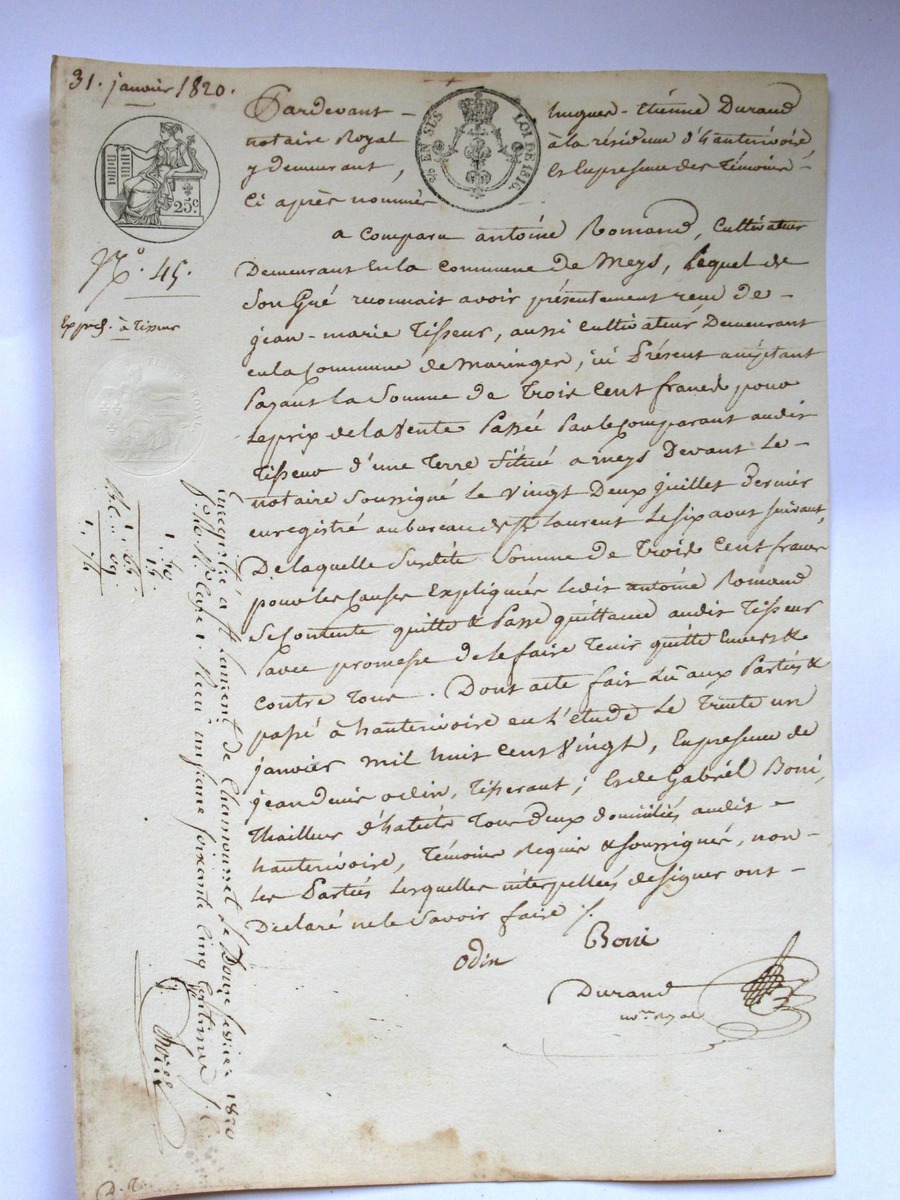 31. janvier 1820.
Pardevant hugues-Etienne Durand
notaire Royal à la résidence d'hauterivoire,
y demeurant, Et En presence des Témoins
Ci après nommés
25c.
EN SUS LOI DE 1816.
N.° 45.
Exped. à Tisseur
a Comparu antoine Romand, Cultivateur
Demeurant En la Commune de Meys, Lequel de
Son Gré reconnait avoir présentement recu de
jean-marie Tisseur, aussi Cultivateur Demeurant
en la Commune de Maringes, ici Présent acceptant
Payant la Somme de Trois Cent francs pour
Le prix de la Vente Passée Par le Comparant audit
Tisseur d'une Terre Situé a meys Devant Le
notaire Soussigné le Vingt Deux juillet Dernier
enregistré au bureau de St Laurent Le six aout Suivant,
De laquelle Susdite Somme de Trois Cent francs
pour les Causes Expliquées Ledit antoine Romand
Se Contente quitte & Passe quittance audit Tisseur
avec promesse de le faire Tenir quitte Envers &
contre Tous. Dont acte fait Lû aux Parties &
passé à hauterivoire en L'étude Le Trente un
janvier mil huit Cent Vingt, En presence de
jean Denis odin, Tisserant; Et de Gabriel Boni,
Thailleur d'habits Tous Deux domiciliés audit
hauterivoire, Témoins Requis & Soussignés, non
Les Parties Lesquelles interpellées de Signer ont
Déclaré ne le Savoir faire ./.
Odin Boni
Durand
no.re Royal
Enregistré à St Laurent de Chamousset le Douze fevrier 1820
Recu un franc soixante Cinq Centimes
1. 50
15.
1. 65.
09
1. 74
D. R.